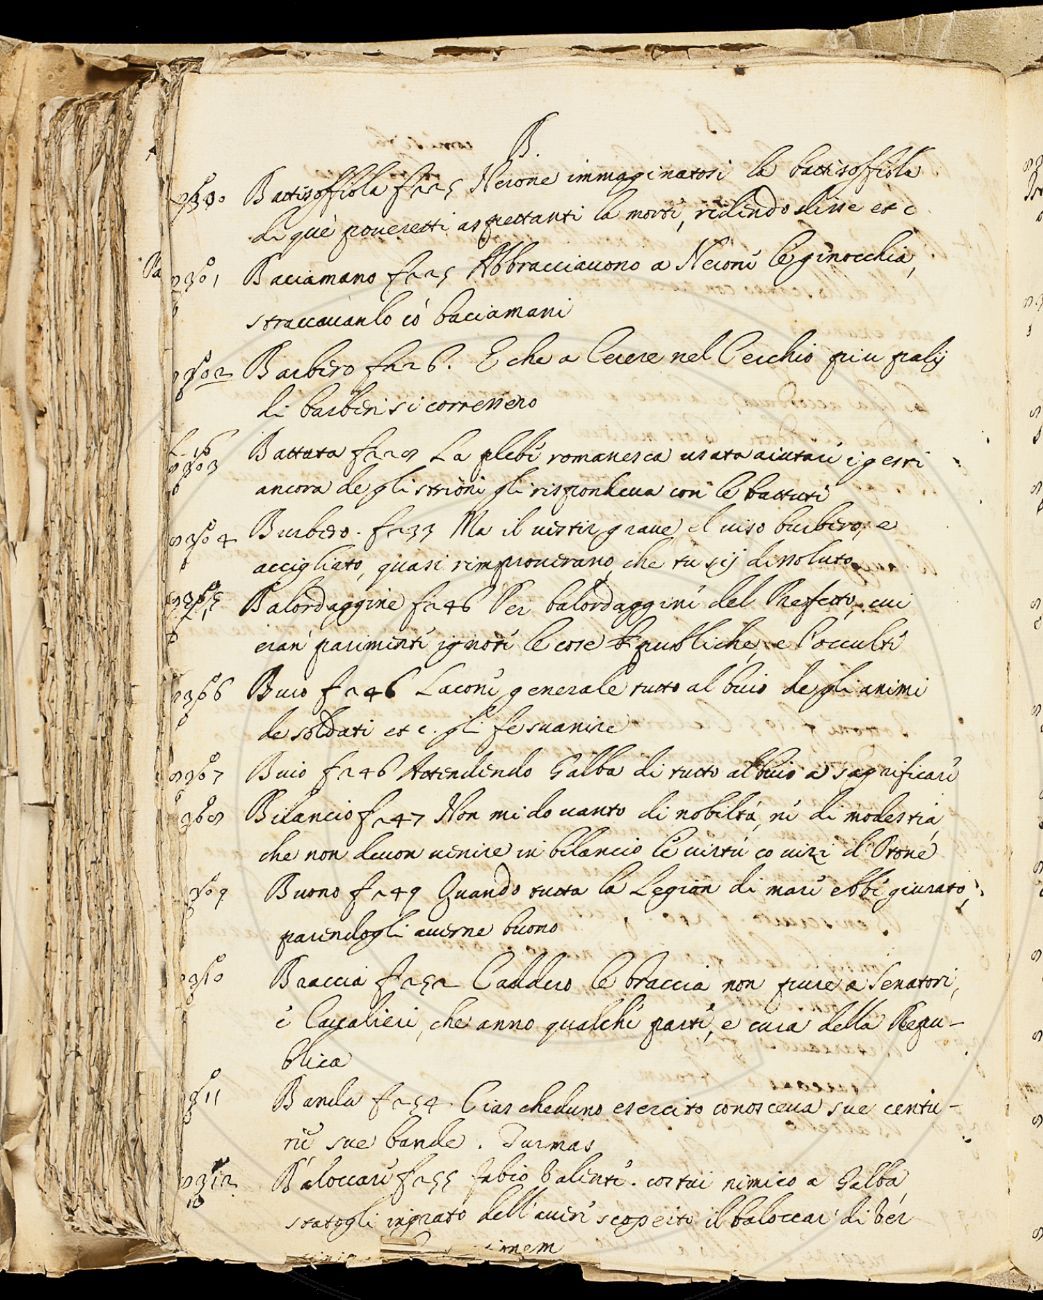 B.
Battisoffiola f 225 Neione immaginatosi la battisoffiola
di què poueretti aspettanti la morte, ridendo disse et c
Baciamano f 225 Abbracciauono a Neione le ginocchia,
straccauanlo có baciamani
Barbero f 226. E che a Cerere nel Cerchio piu palij
di barberi si corressero
Battuta f 228 La plebe romanesca usata aiutare i gesti
ancora de gl'istrioni gli rispondeua con le battute
Burbero. f 233 Ma il uestir graue, el uiso burbero, e
accigliato, quasi rimprouerano, che tu sij dissoluto
Balordaggine f 246 Per balordaggine del Prefetto, cui
eran' parimente ignote le cose publiche, e l'occulte
Buio f 246 Lacone, generale tutto al buio de gli animi
de soldati et c. gli fe suanire
Buio f 246 Attendendo Galba di tutto al buio a sagrificare
Bilancio f 247 Non mi do uanto di nobiltà, né di modestia
che non deuon uenire in bilancio le uirtú co uizi d'Otone
Buono f 249 Quando tutta la Legion di mare ebbe giurato,
parendogli auerne buono
Braccia f 252 Caddero le braccia non pure a Senatori,
e Caualieri, che anno qualche parte, e cura della Repu-
blica
Banda f 254. Ciascheduno esercito conosceua sue centu-
rie sue bande. Turmas
Baloccare f 255 Fabio Valente. costui nimico a Galba
statogli ingrato dell'auere scoperto il baloccar di Ver